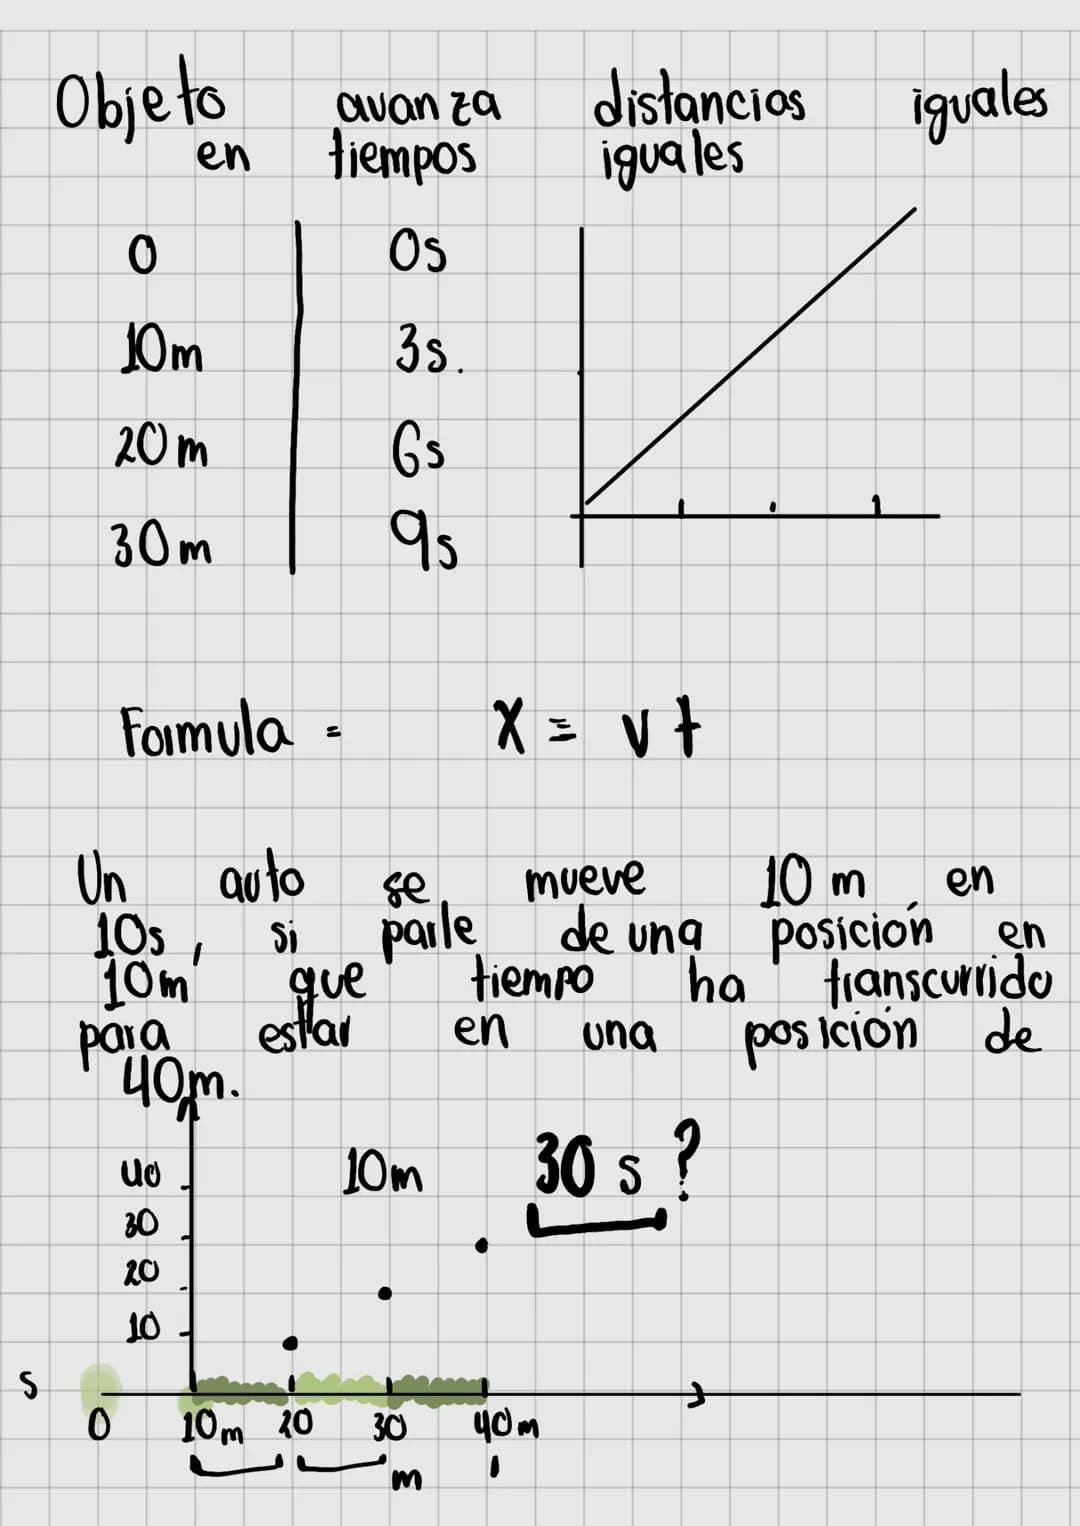 Objeto avanza distancias iguales
en tiempos iguales
0 0s
10m 3s.
20m 6s
30m 9s
Formula = X = vt
Un auto se mueve 10 m en
10s, si parte de una posición en
10m que tiempo ha transcurrido
para estar en una posición de
40m.
40 10m 30 s ?
30
20
10
s
0 10m 20 30 40m
m